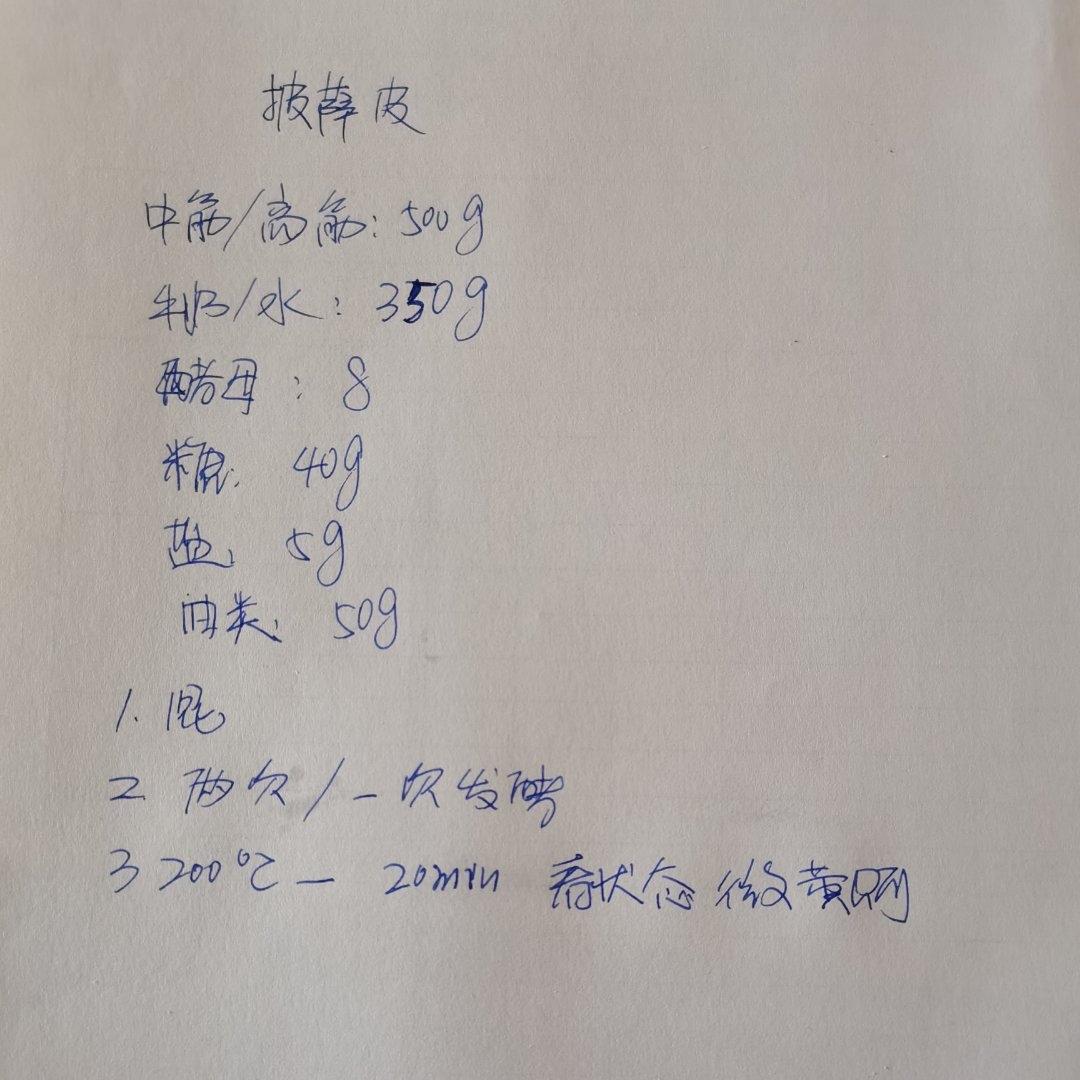 披萨皮
中筋/高筋: 500g
牛奶/水: 350g
酵母: 8
糖: 40g
盐: 5g
油类: 50g
1.
2. 两次/一次发酵
3 200℃ — 20min 看状态 微黄